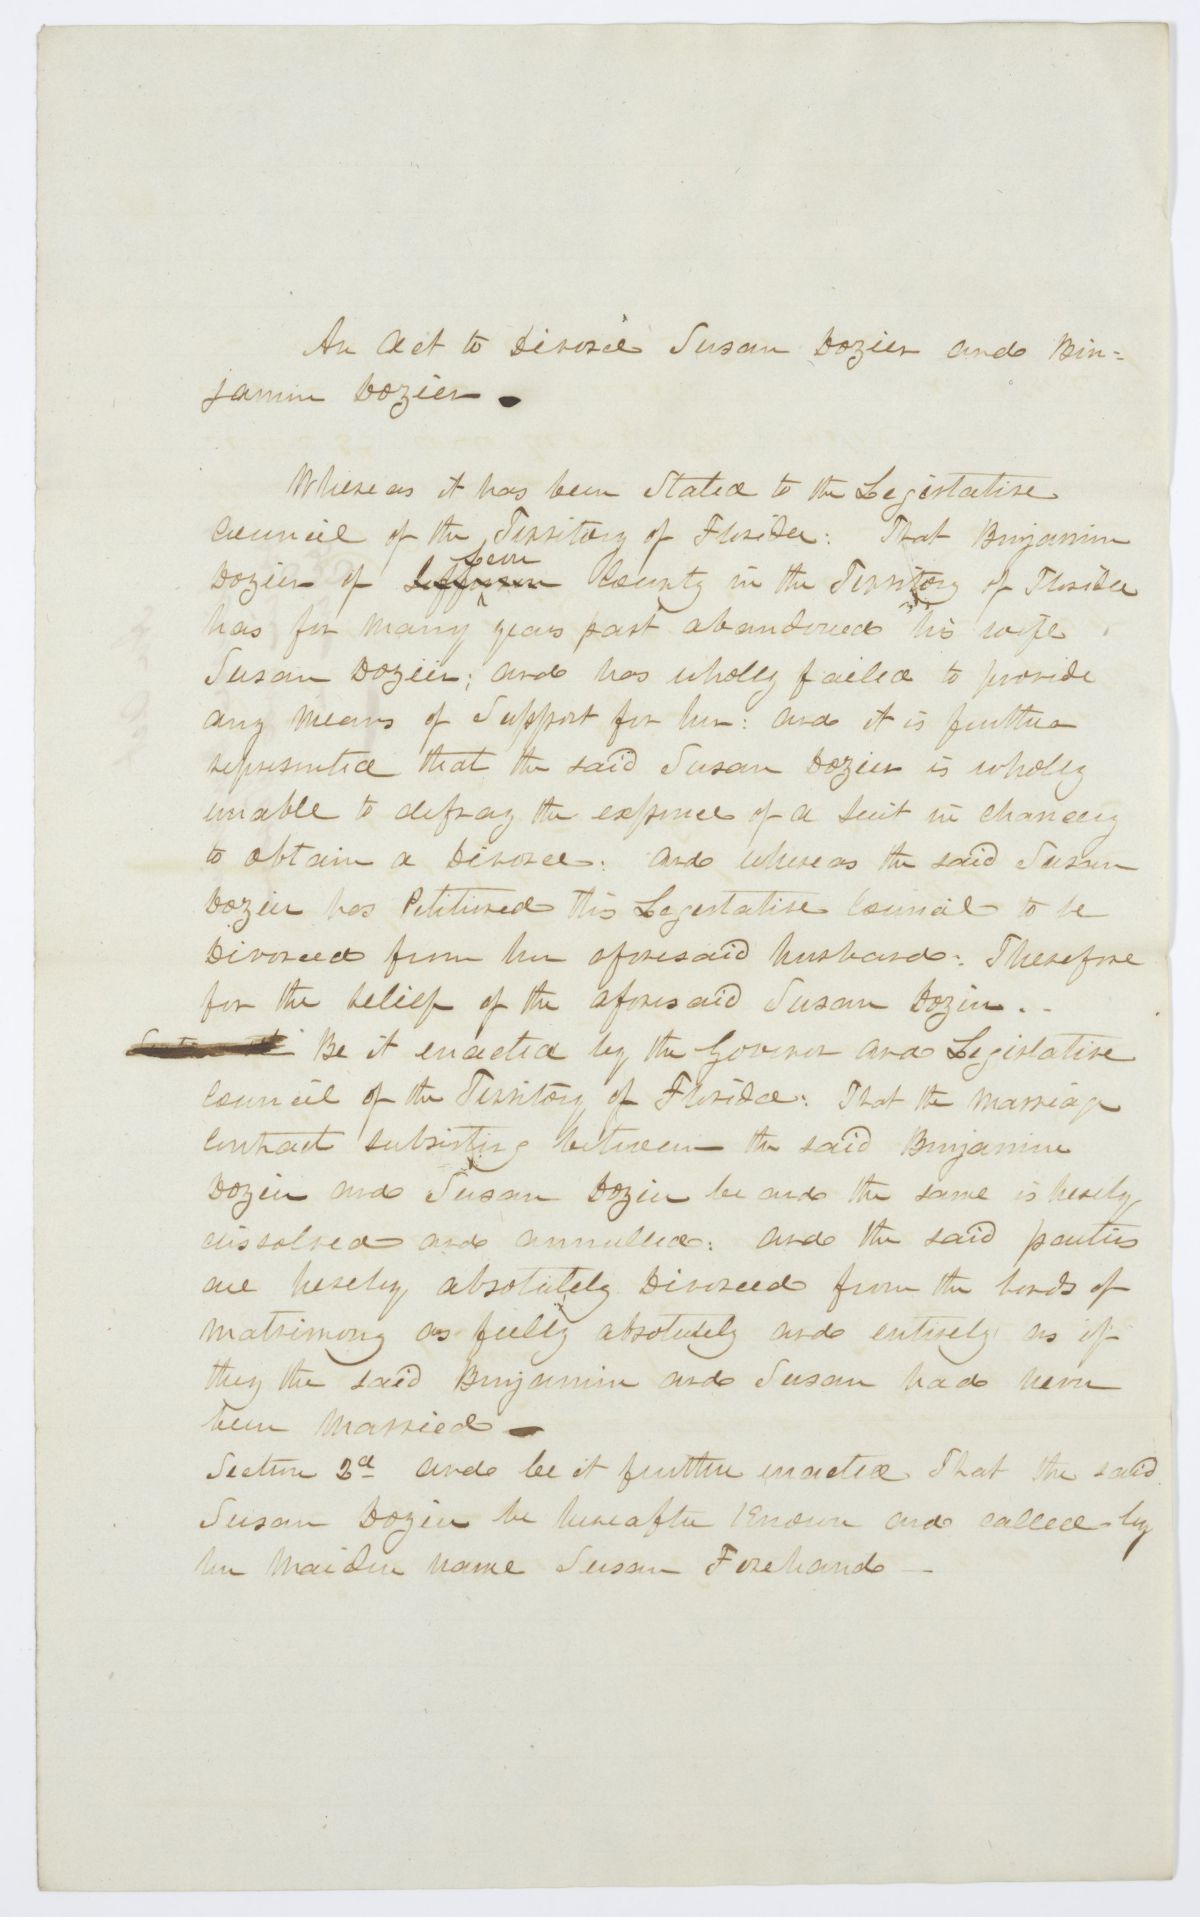 An Act to Divorce Susan Dozier and Bin=
jamin Dozier.
Whereas it has been Stated to the Legislative
Council of the Territory of Florida: That Binjamin
Leon
Dozier of Jefferson County in the Territory of Florida
has for many years past abandoned his wife
Susan Dozier; and has wholly failed to provide
any means of Support for her: and it is further
represented that the said Susan Dozier is wholly
unable to defray the expence of a Suit in chancery
to obtain a Divorce: and whereas the said Susan
Dozier has Petitioned this Legislative Council to be
Divorced from her aforesaid husband: Therefore
for the relief of the aforesaid Susan Dozier..
Section 1st Be it enacted by the Governor and Legislative
Council of the Territory of Florida: That the Marriage
Contract subsisting between the said Binjamin
Dozier and Susan Dozier be and the same is hereby
dissolved and annulled: and the said parties
are hereby absolutely Divorced from the bonds of
Matrimony as fully absolutely and entirely as if
they the said Binjamin and Susan had never
been Married
Section 2d and be it further enacted That the said
Susan Dozier be hereafter Known and called by
her Maiden name Susan Forehand